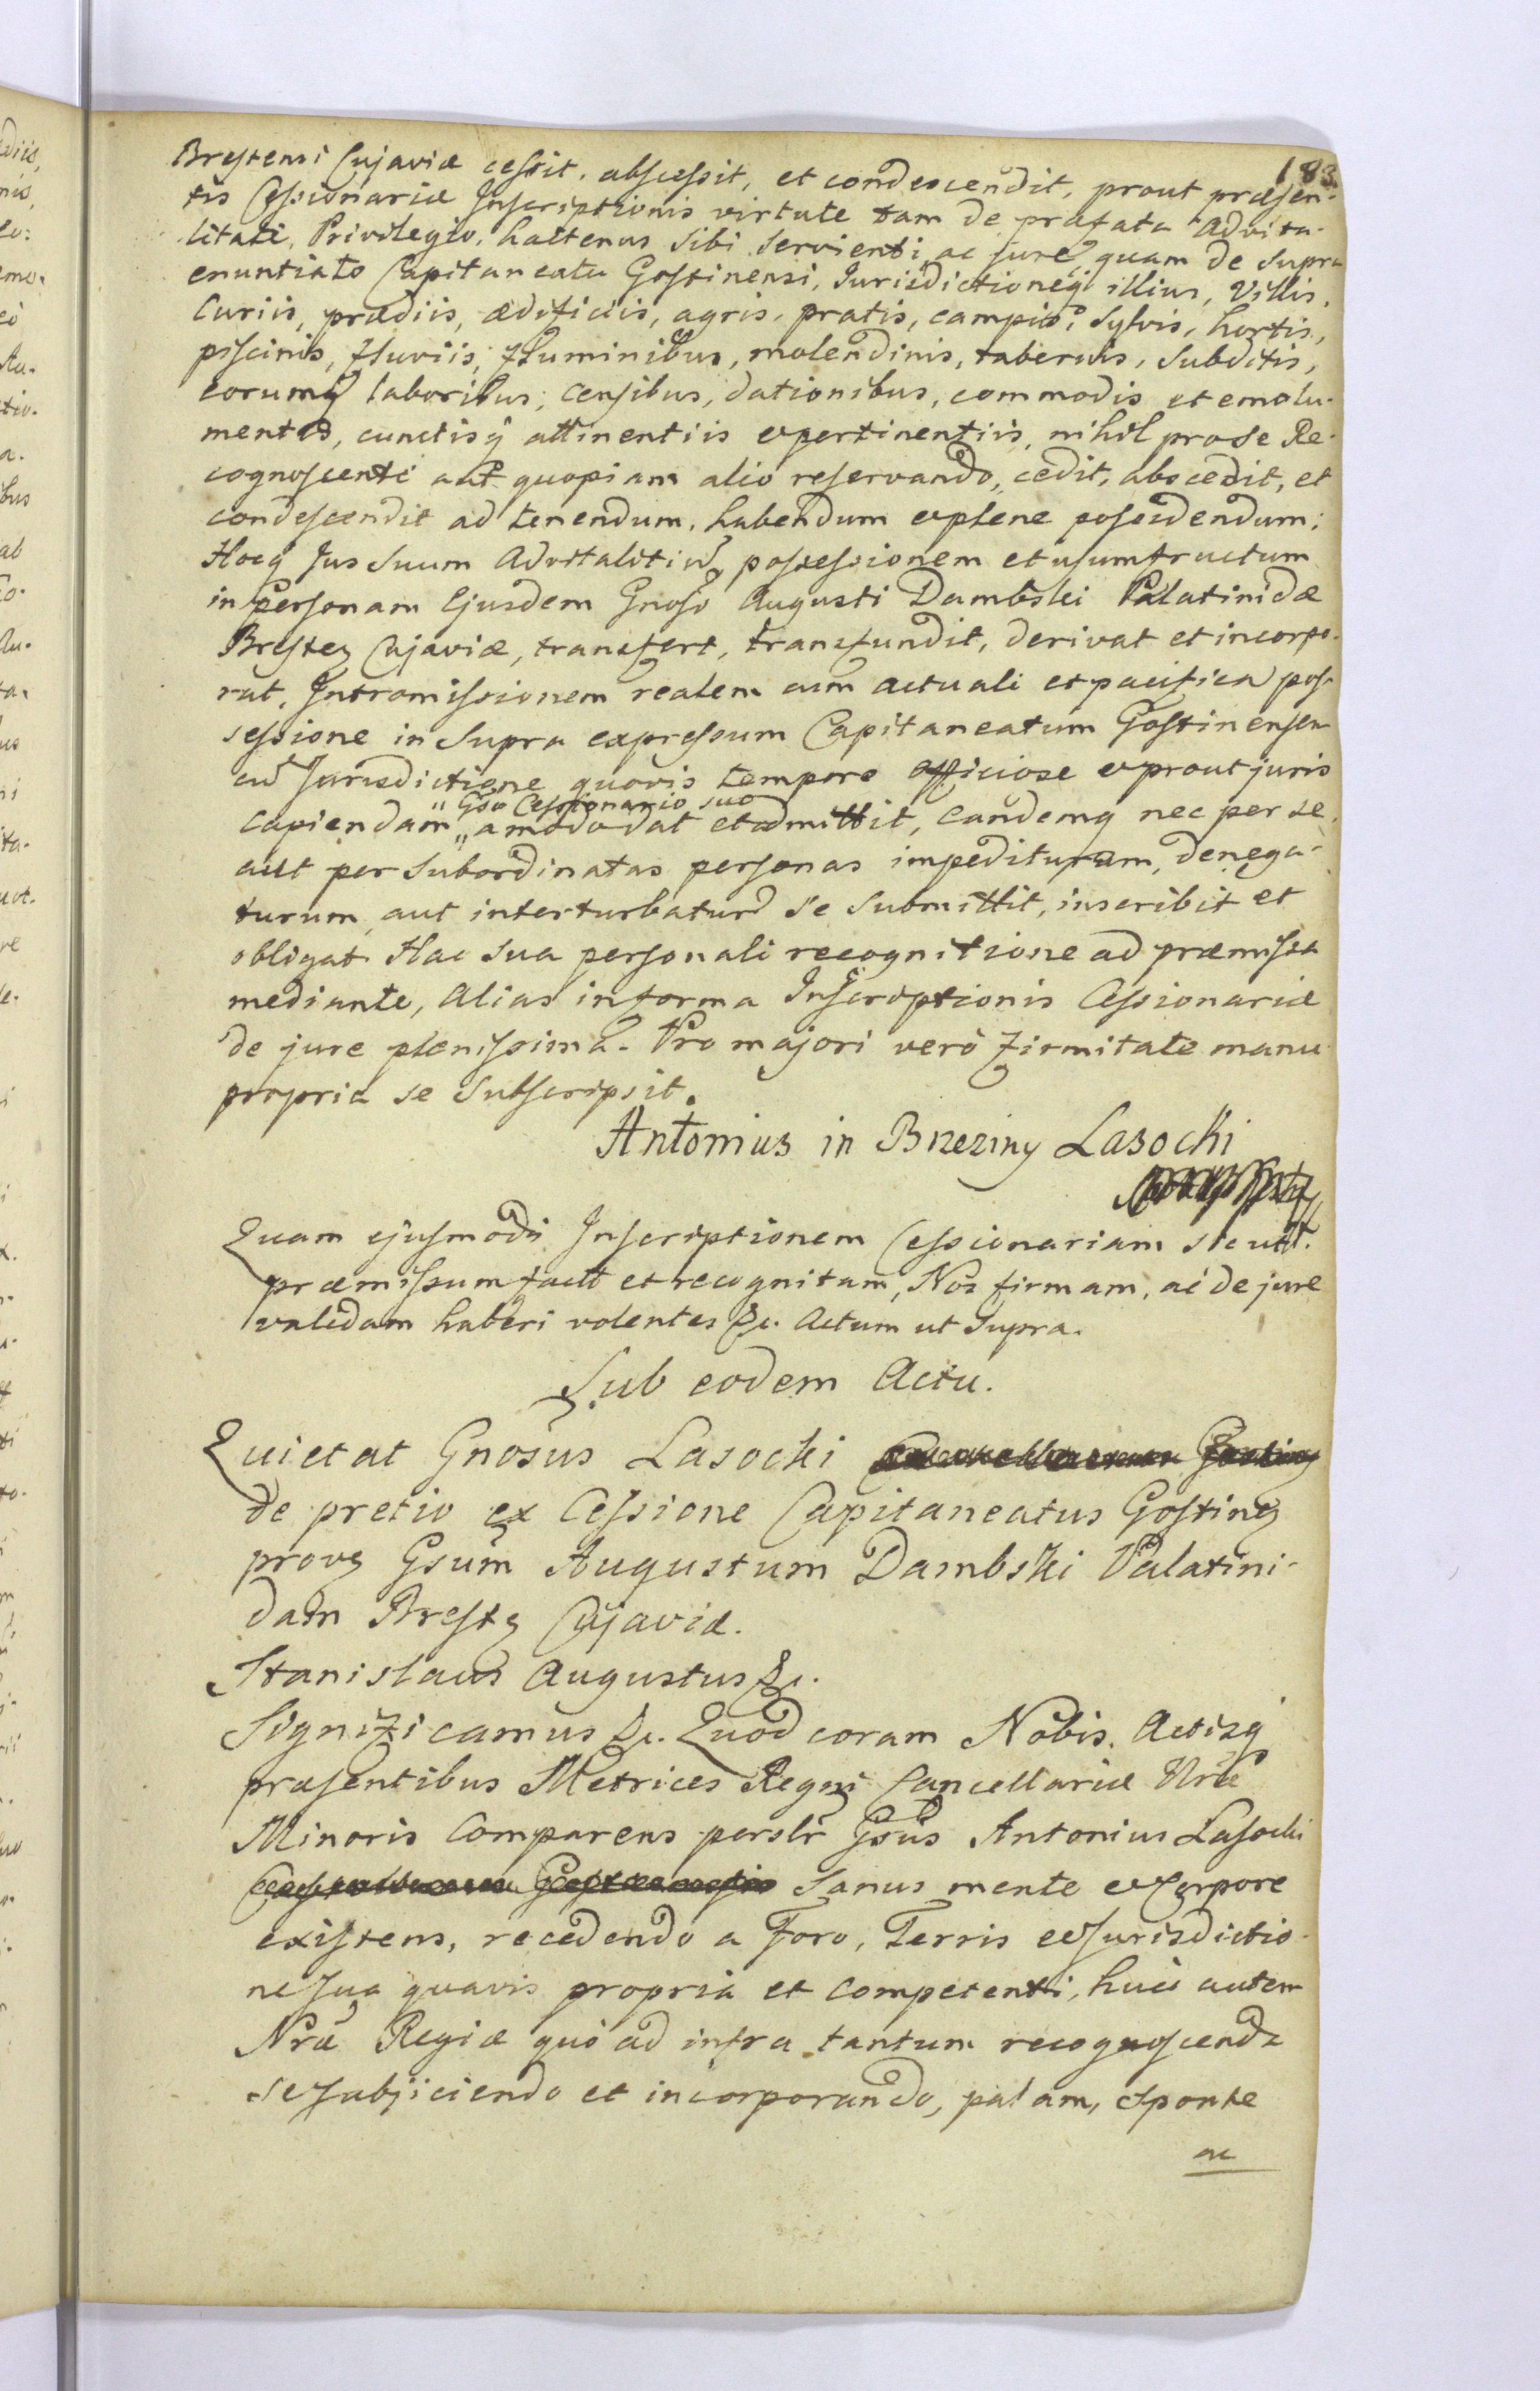 183
Brestensi Cujaviæ cessit, abscessit, et condescendit, prout præsen-
tis Cessionariæ Inscriptionis virtute tam de præfata Advita-
litate, Privilegio, hactenus sibi servienti, ac jure, quam de supra
enuntiato Capitaneatu Gostinensi, Jurisdictioneq illius, Villis,
Curiis, prædiis, ædificiis, agris, pratis, campis, sylvis, hortis,
piscinis, fluviis, fluminibus, molendinis, tabernis, subditis,
eorumq laboribus, censibus, dationibus, commodis et emolu-
mentis, cunctisq attinentiis et pertinentiis, nihil pro se Re-
cognoscente aut quopiam alio reservando, cedit, abscedit, et
condescendit ad tenendum, habendum et plene possidendum;
Hocq Jus suum Advitalitiũ, possessionem et usumfructum
in personam Ejusdem Gnosi Augusti Dambski Palatinidæ
Bresten Cujaviæ, transfert, transfundit, derivat et incorpo-
rat, Intromissionem realem cum actuali et pacifica pos-
sessione in supra expressum Capitaneatum Gostinensem
cũ Jurisdictione quovis tempore officiose et prout juris
Gso Cessionario suo
capiendam " amodo dat et admittit, eandemq nec per se,
aut per subordinatas personas impediturum, denega-
turum, aut interturbaturũ se submittit, inscribit et
obligat. Hac sua personali recognitione ad præmissa
mediante, alias in forma Inscriptionis Cessionariæ
de jure plenissima. Pro majori verò firmitate manu
propria se subscripsit.
Antonius in Brzeziny Lasocki
Quam ejusmodi Inscriptionem Cessionariam sic utt.
præmissum factt et recognitam, Nos firmam, ac de jure
validam haberi volentes &c. Actum ut supra.
Sub eodem Actu.
Quietat Gnosus Lasocki
de pretio ex Cessione Capitaneatus Gostinen
proven Gsum Augustum Dambski Palatini-
dam Bresten Cujaviæ.
Stanislaus Augustus &c.
Significamus &c. Quod coram Nobis, Actisq
præsentibus Metrices Regni Cancellariæ Nræ
Minoris Comparens persltr Gsus Antonius Lasocki
sanus mente et corpore
existens, recedendo a Foro, Terris et Jurisdictio-
ne sua quavis propria et competenti, huic autem
Nræ Regiæ quo ad infra tantum recognoscenda
se subjiciendo et incorporando, palam, sponte
ac